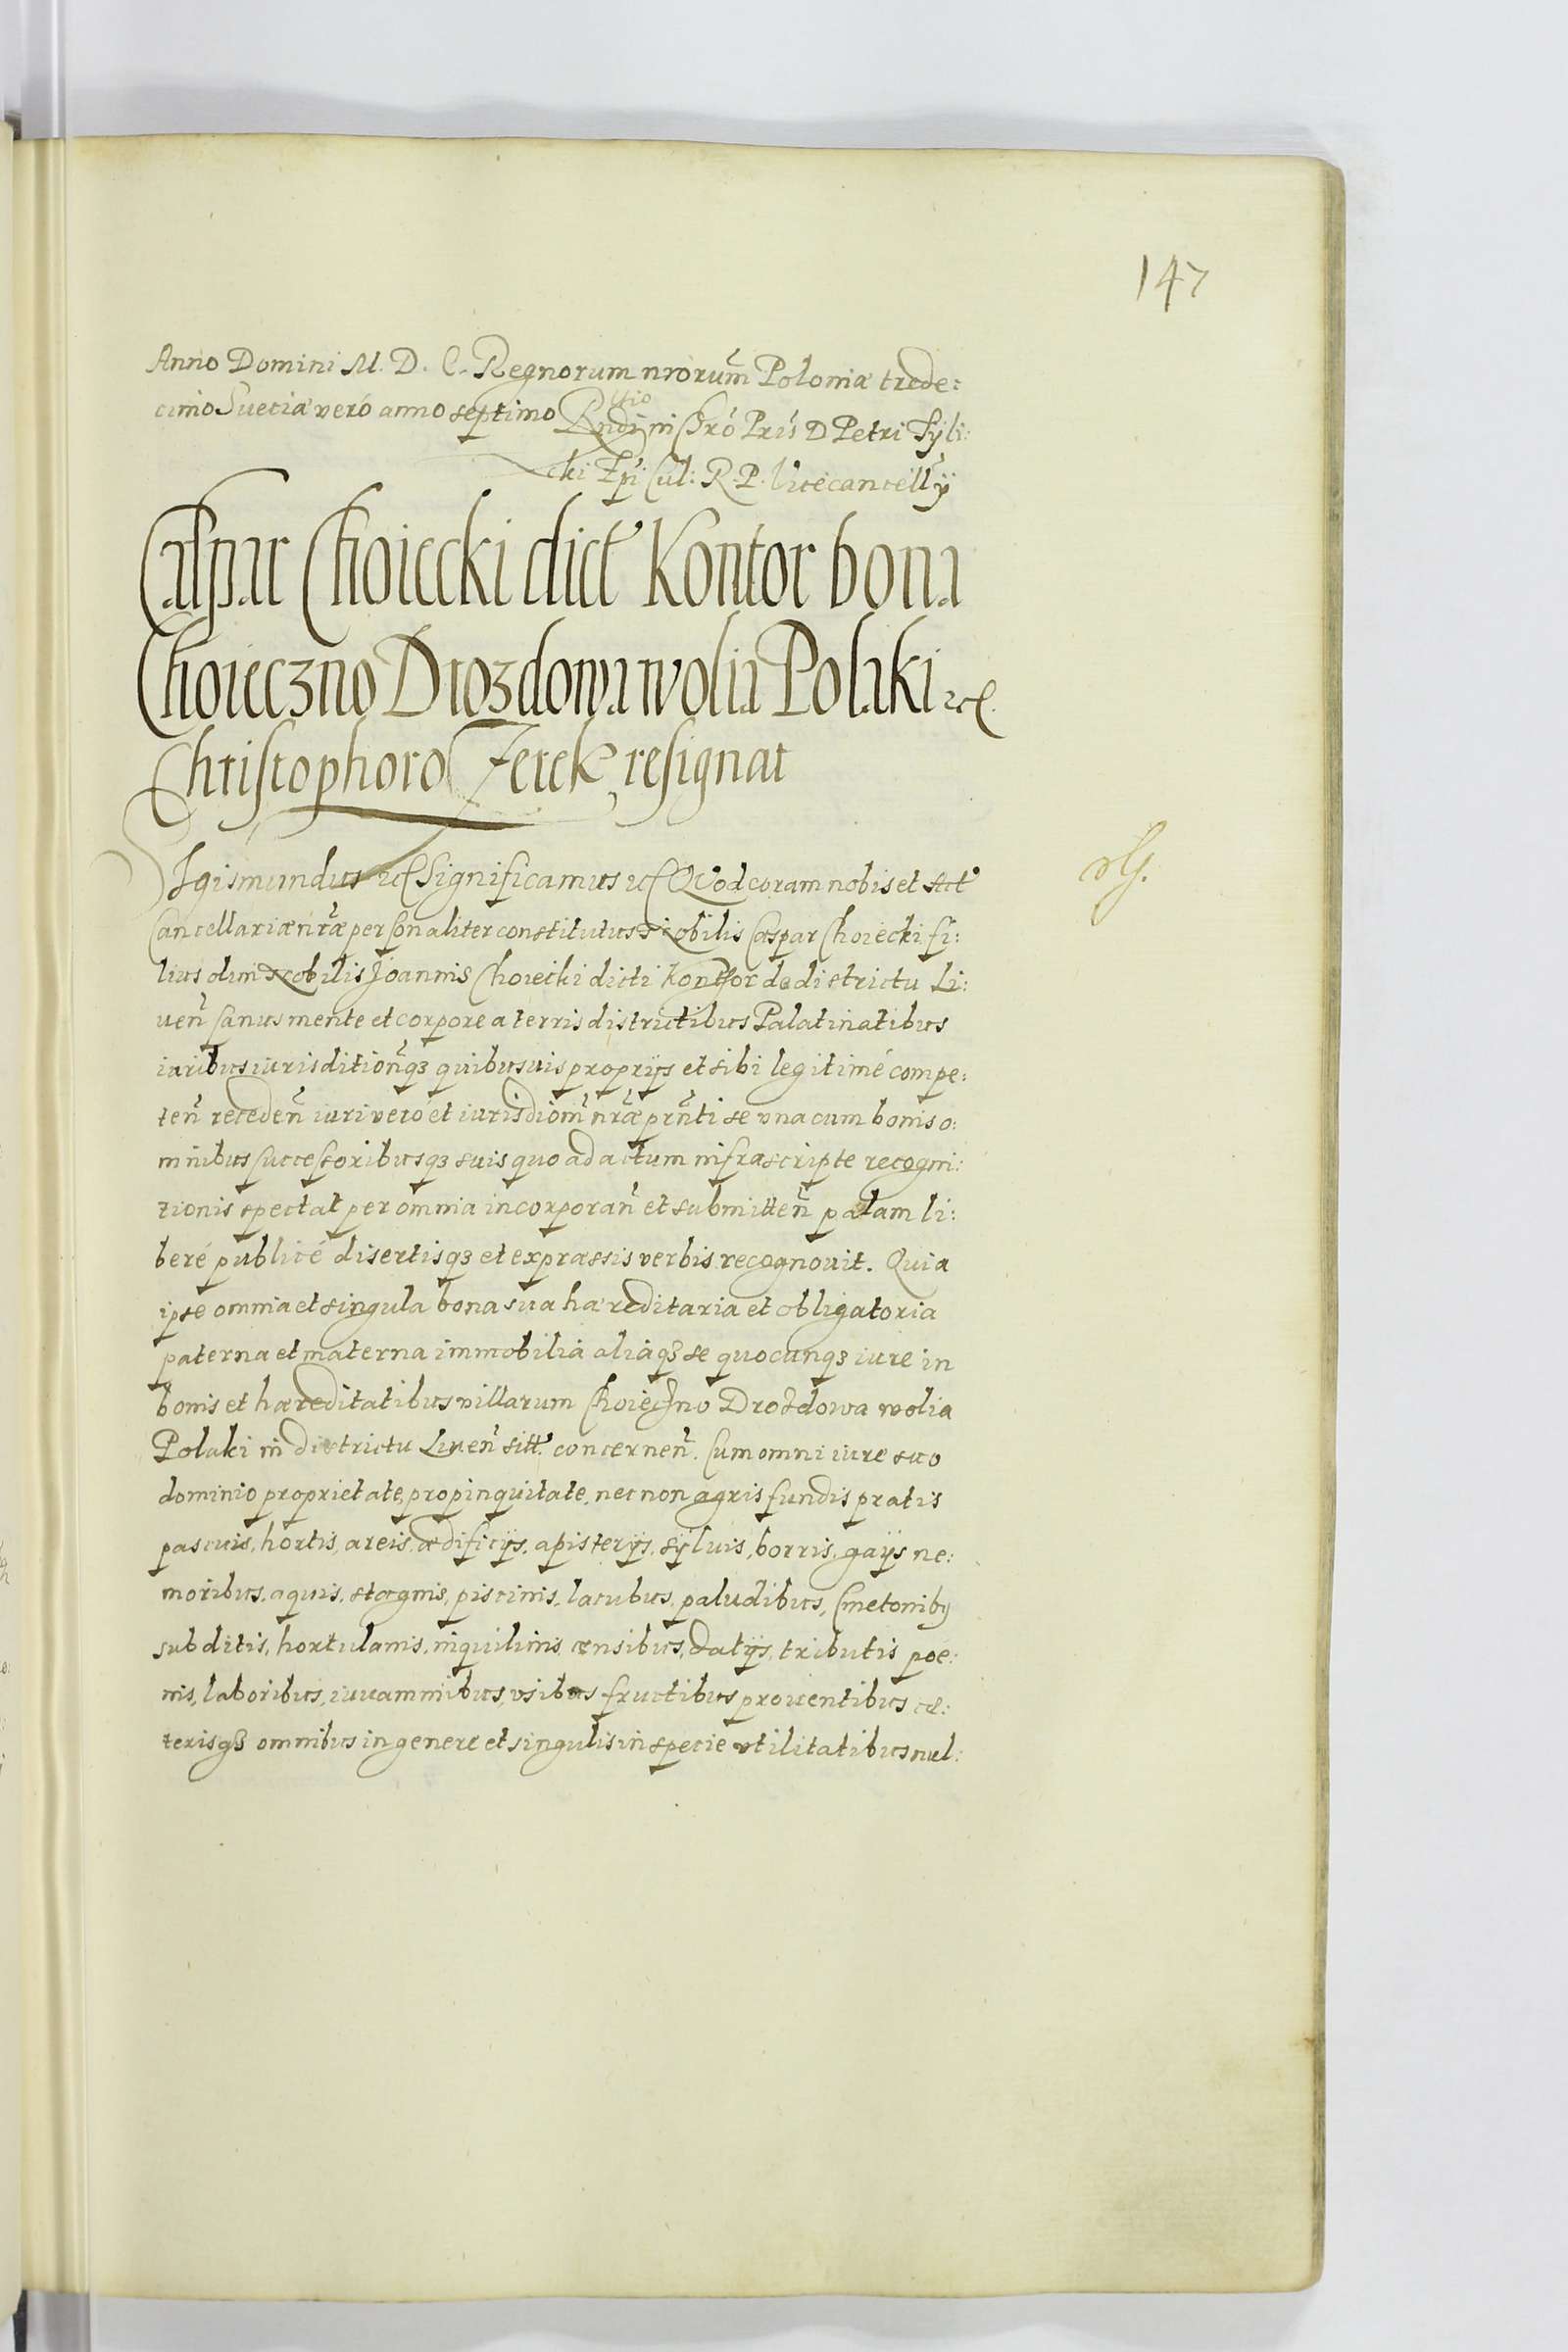 147
Anno Domini M. D. C. Regnorum nrorum Poloniæ trede:
cimo Sueciæ veró anno septimo Rndi in Chró Pris D Petri Tyli:
cki Epi Cul: R. P. Vicecancellÿ
Caspar Choiecki dict Kontor bona
Choieczno Drozdowa wolia Polaki etc.
Christophoro Jerek resignat
Sigismundus etc Significamus etc Quod coram nobis et Act
Cancellariæ nræ personaliter constitutus Nobilis Caspar Choiecki fi:
lius olim Nobilis Joannis Choiecki dicti Kontor de districtu Li:
uen sanus mente et corpore a terris districtibus Palatinatibus
iuribus iurisdition qz quibusuis proprÿs et sibi legitimé compe:
ten receden iuri vero et iurisdiom nræ prnti se vna cum bonis o:
mnibus successoribusqz suis quo ad actum infrascripte recogni:
tionis spectat per omnia incorporan et submitten palam li:
beré publicé disertisqz et expræssis verbis recognouit. Quia
ipse omnia et singula bona sua hæreditaria et obligatoria
paterna et materna immobilia aliaqz se quocunqz iure in
bonis et hæreditatibus villarum Choieczno Drozdowa wolia
Polaki in districtu Liuen sitt concernen. Cum omni iure suo
dominio proprietate, propinquitate, nec non agris fundis pratis
pascuis, hortis, areis, ædificÿs, apisterÿs, syluis, borris, gaÿs ne:
moribus, aquis, stagnis, piscinis, lacubus, paludibus, Cmetonibq
subditis, hortulanis, inquilinis, censibus, datÿs, tributis poe:
nis, laboribus, iuuaminibus, vsibus fructibus prouentibus cæ:
terisqz omnibus in genere et singulis in specie vtilitatibus nul: